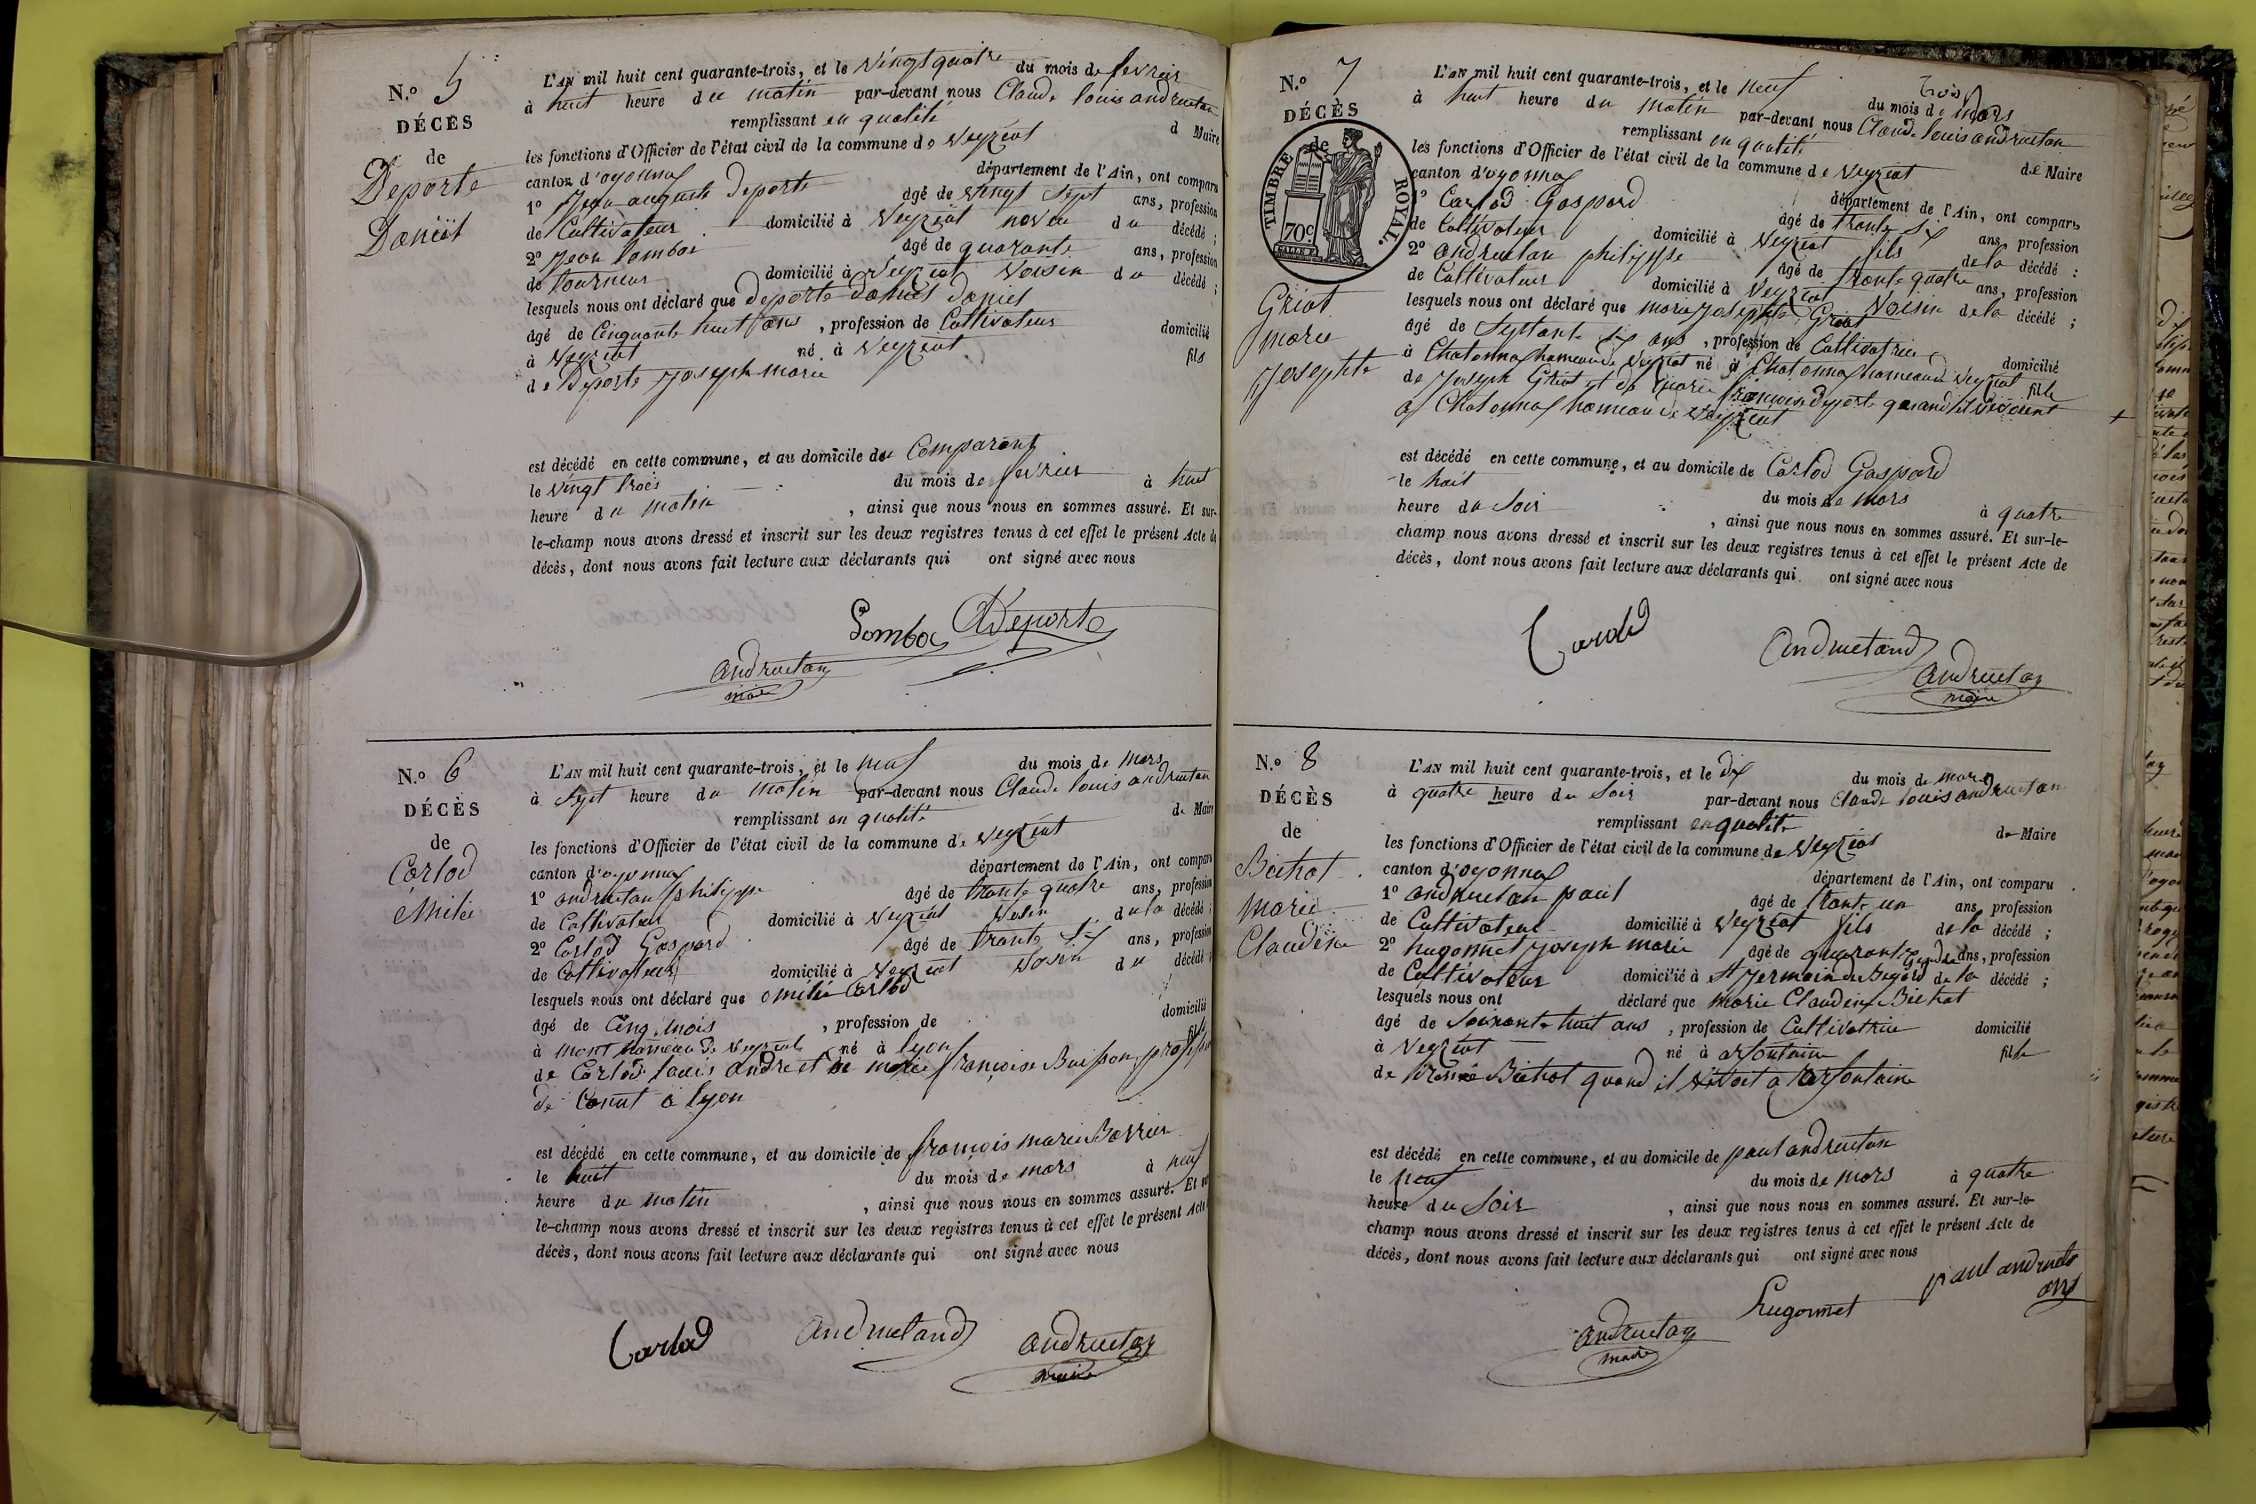 N.º 5
DÉCÈS
de
Deporte
Daniel
L'AN mil huit cent quarante-trois, et le vingt quatre du mois de fevrier
à huit heure du matin par-devant nous Claude louis andruetan
remplissant en qualité d Maire
les fonctions d'Officier de l'état civil de la commune de Veyziat
canton d'oyonnax département de l'Ain, ont comparu
1º Jean auguste Deporte âgé de vingt sept ans, profession
de Cultivateur domicilié à Veyziat neveu du décédé ;
2º Jean Sombox âgé de quarante ans, profession
de tourneur domicilié à Veyziat voisin du décédé ;
lesquels nous ont déclaré que deporte daniel daniel
âgé de Cinquante huit ans , profession de Cultivateur domicilié
à Veyziat né à Veyziat fils
de Deporte Joseph marie
est décédé en cette commune, et au domicile du Comparant
le vingt trois du mois de fevrier à huit
heure du matin , ainsi que nous nous en sommes assuré. Et sur-
le-champ nous avons dressé et inscrit sur les deux registres tenus à cet effet le présent Acte de
décès, dont nous avons fait lecture aux déclarants qui ont signé avec nous
ADeporte
andruetan
maire
N.º 6
DÉCÈS
de
Carlod
émilie
L'AN mil huit cent quarante-trois, et le neuf du mois de mars
à sept heure du matin par-devant nous Claude louis andruetan
remplissant en qualité de Maire
les fonctions d'Officier de l'état civil de la commune de Veyziat
canton d'oyonnax département de l'Ain, ont comparu
1º andruetan philippe âgé de trente quatre ans, profession
de Cultivateur domicilié à Veyziat voisin de la décédé ;
2º Carlod Gaspard âgé de trente six ans, profession
de Cultivateur domicilié à Veyziat voisin du décédé ;
lesquels nous ont déclaré que émilie Carlod
âgé de Cinq mois , profession de domicilié
à mont hameau de veyziat né à lyon fille
de Carlod louis andré et de marie françoise Buisson, profession
de Canut à lyon
est décédé en cette commune, et au domicile de françois marie Barrier
le huit du mois de mars à neuf
heure du matin , ainsi que nous nous en sommes assuré. Et sur-
le-champ nous avons dressé et inscrit sur les deux registres tenus à cet effet le présent Acte
décès, dont nous avons fait lecture aux déclarants qui ont signé avec nous
Carlod andruetand andruetan
maire
N.º 7
DÉCÈS
de
TIMBRE ROYAL.
70 c.
Griot
marie
Josephte
L'AN mil huit cent quarante-trois, et le neuf du mois de mars
à huit heure du matin par-devant nous Claude louis andruetan
remplissant en qualité de Maire
les fonctions d'Officier de l'état civil de la commune de Veyziat
canton d'oyonnax département de l'Ain, ont comparu
1º Carlod Gaspard âgé de trente six ans, profession
de Cultivateur domicilié à Veyziat fils de la décédé ;
2º andruetan philippe âgé de trente quatre ans, profession
de Cultivateur domicilié à Veyziat Voisin de la décédé ;
lesquels nous ont déclaré que marie Josephte Griot
âgé de Septante six ans , profession de Cultivatrice domicilié
à Chatonnax hameau de Veyziat né à Chatonnax hameau de Veyziat fille
de Joseph Griot et de marie françoise deporte quand ils vivoient
à Chatonnax hameau de Veyziat
est décédé en cette commune, et au domicile de Carlod Gaspard
le huit du mois de mars à quatre
heure du Soir , ainsi que nous nous en sommes assuré. Et sur-le-
champ nous avons dressé et inscrit sur les deux registres tenus à cet effet le présent Acte de
décès, dont nous avons fait lecture aux déclarants qui ont signé avec nous
Carlod andruetand andruetan
maire
N.º 8
DÉCÈS
de
Bichat
Marie
Claudine
L'AN mil huit cent quarante-trois, et le dix du mois de mars
à quatre heure du Soir par-devant nous Claude louis andruetan
remplissant en qualité de Maire
les fonctions d'Officier de l'état civil de la commune de Veyziat
canton d'oyonnax département de l'Ain, ont comparu
1º andruetan paul âgé de trente un ans, profession
de Cultivateur domicilié à Veyziat fils de la décédé ;
2º hugonnet Joseph marie âgé de quarante ans, profession
de Cultivateur domicilié à St Germain de Gendre de la décédé ;
lesquels nous ont déclaré que marie Claudine Bichat
âgé de Soixante huit ans , profession de Cultivatrice domicilié
à Veyziat né à arfontaine fille
de Bichat quand il vivoit à arfontaine
est décédé en cette commune, et au domicile de paul andruetan
le neuf du mois de mars à quatre
heure du Soir , ainsi que nous nous en sommes assuré. Et sur-le-
champ nous avons dressé et inscrit sur les deux registres tenus à cet effet le présent Acte de
décès, dont nous avons fait lecture aux déclarants qui ont signé avec nous
paul andruetan
hugonnet
andruetan
maire